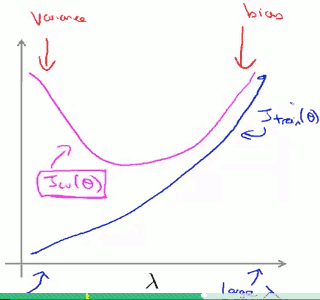 Variance
bias
J train(θ)
Jcv(θ)
λ
large λ